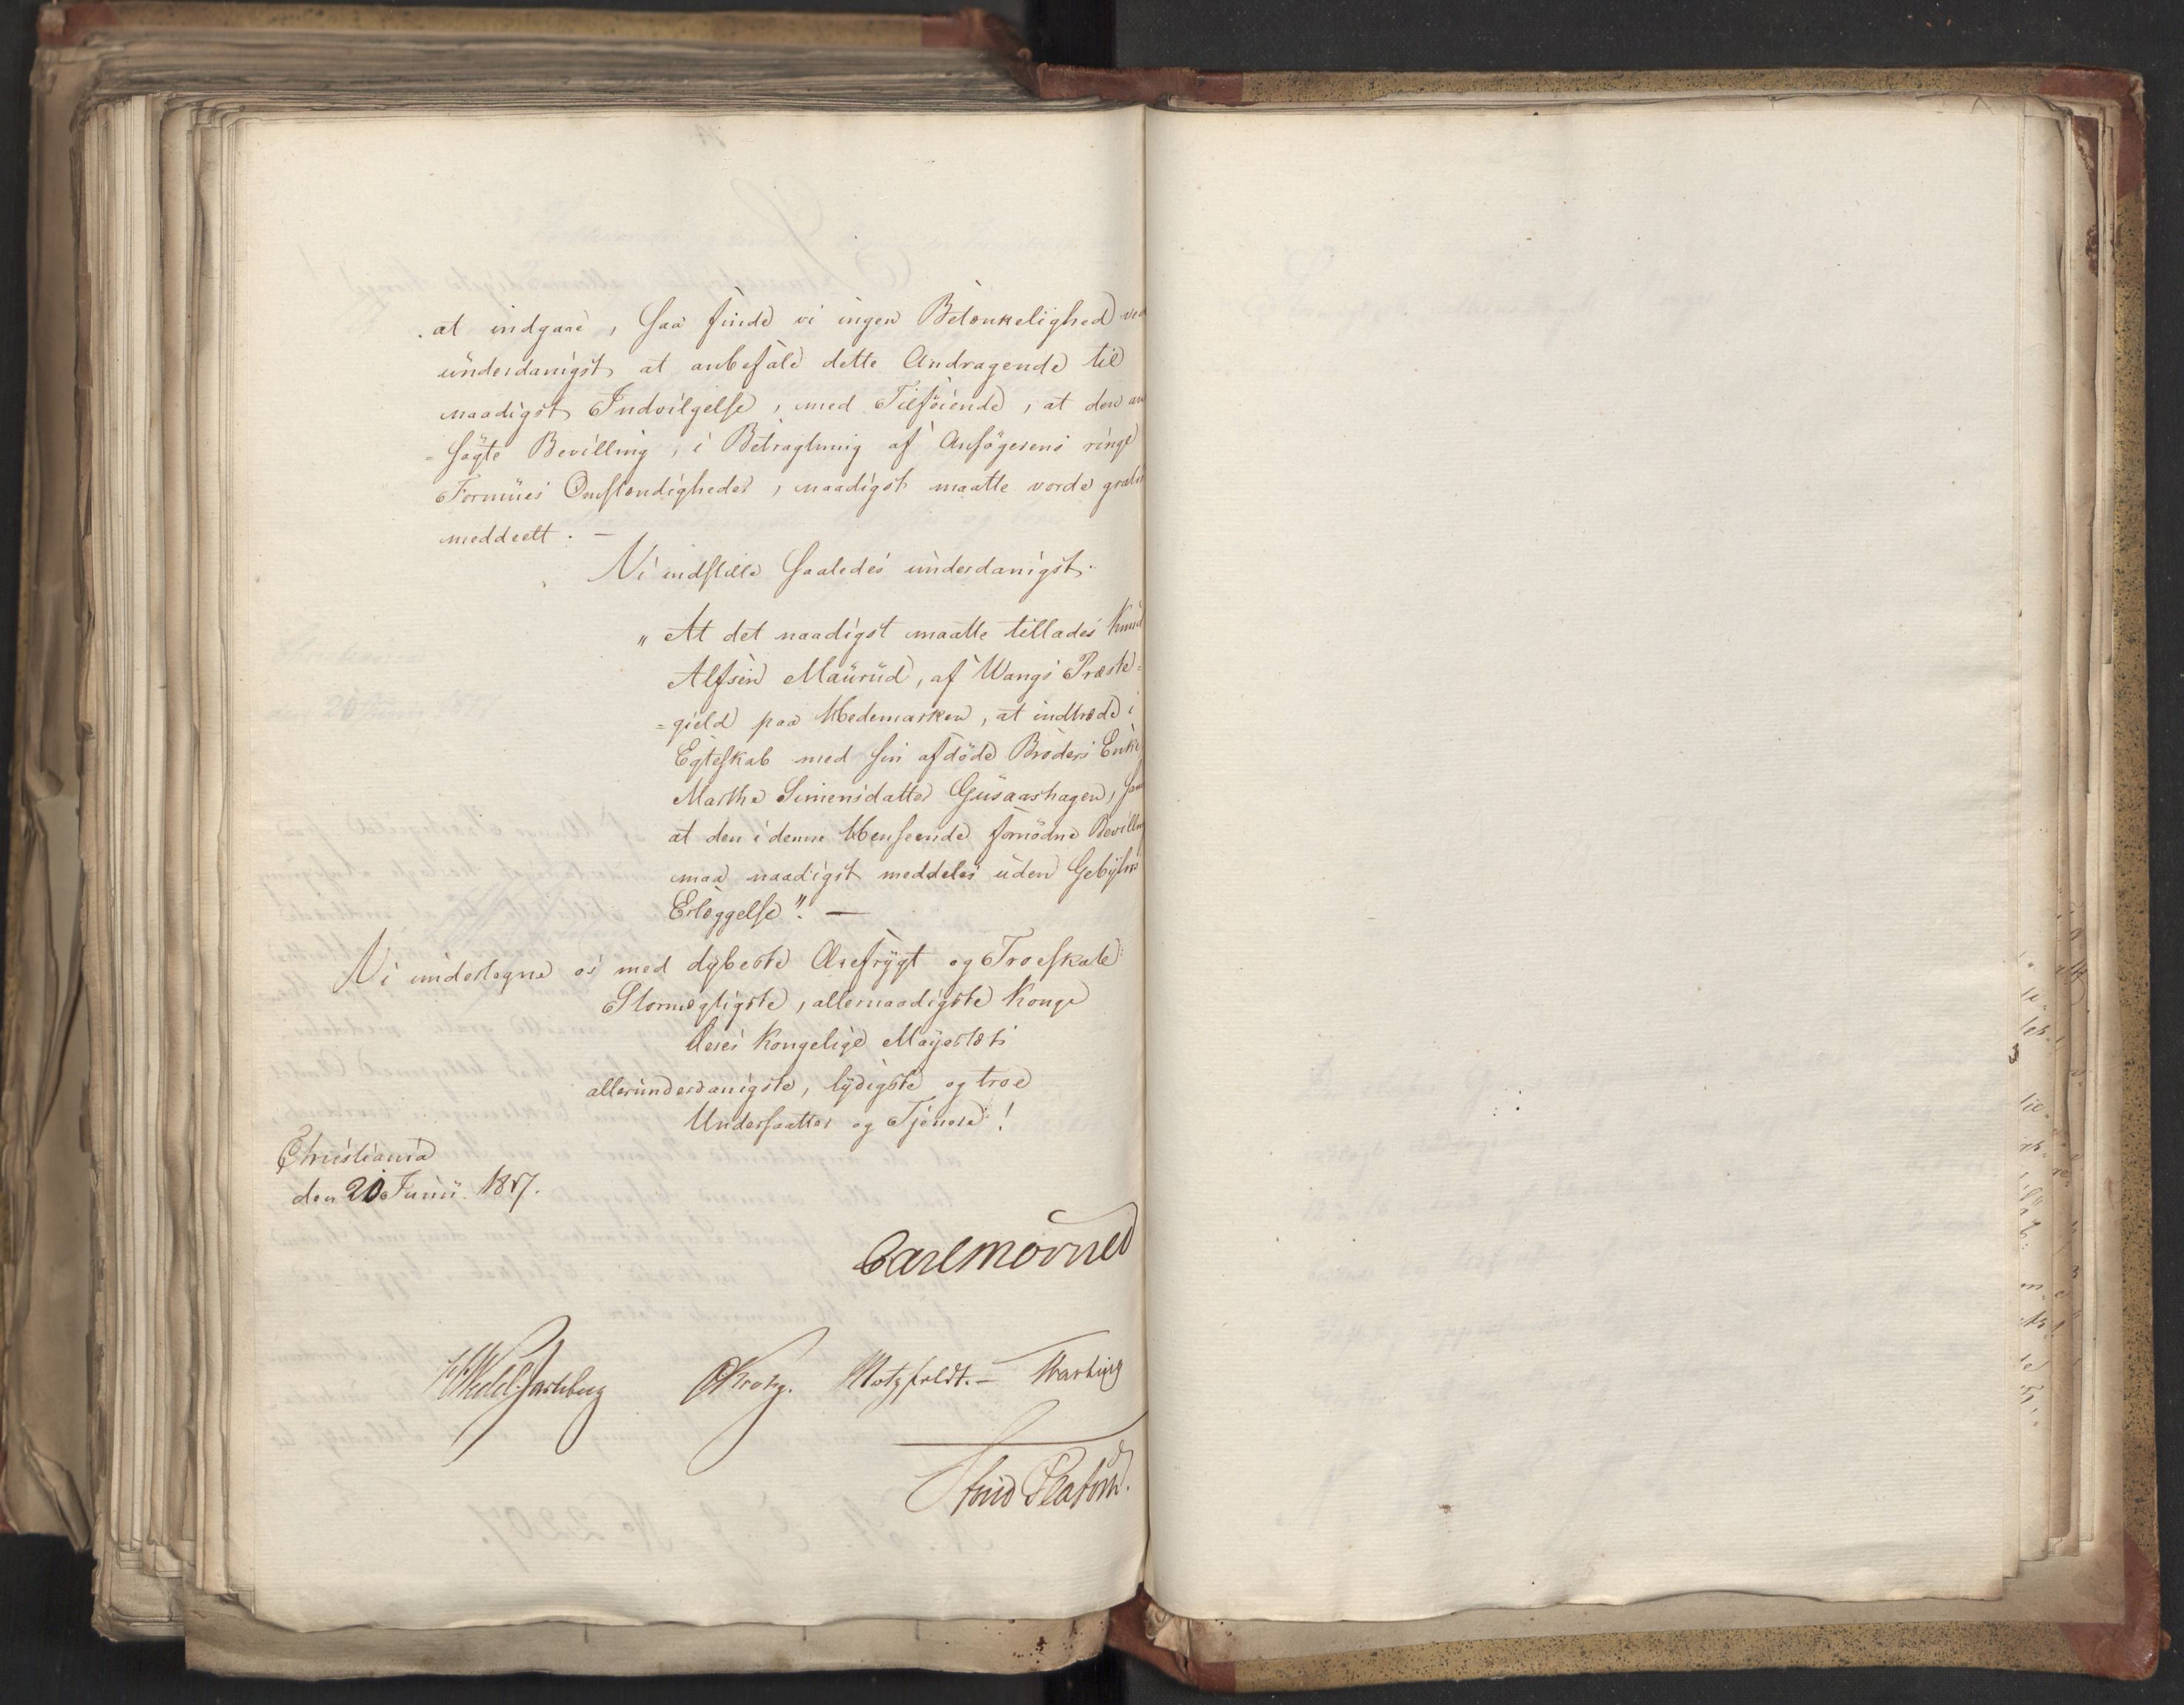 at indgaae, saa finde vi ingen Betænkelighed ved
underdanigst at anbefale dette Andragende til
naadigst Indvilgelse, med Tilføiende, at den an
= søgte Bevilling, i Betragtning af Ansøgerens ringe
Formues Omstændigheder, naadigst maatte vorde gratis
meddeelt. —
Vi indstille saaledes underdanigst:
„At det naadigst maatte tillades Knud
Alfsen Maurud, af Wangs Præste=
=gield paa Hedemarken, at indtræde i
Egteskab med sin afdøde Broders Enke
Marthe Simensdatter Gusaashagen, samt
at den i denne Henseende fornødne Bevilling
maa naadigst meddeles uden Gebyhrs
Erlæggelse". —
Vi undertegne os med dybeste Ærefrygt og Troeskab
Stormægtigste, allernaadigste Konge
Deres Kongelige Mayestæts
allerunderdanigste, lydigste og troe
Undersaatter og Tjenere!
Christiania
den 20 Junii 1817.
Carl Mörner
HWedel Jarlsberg CKrohg. Motzfeldt. —
Stud Platou.